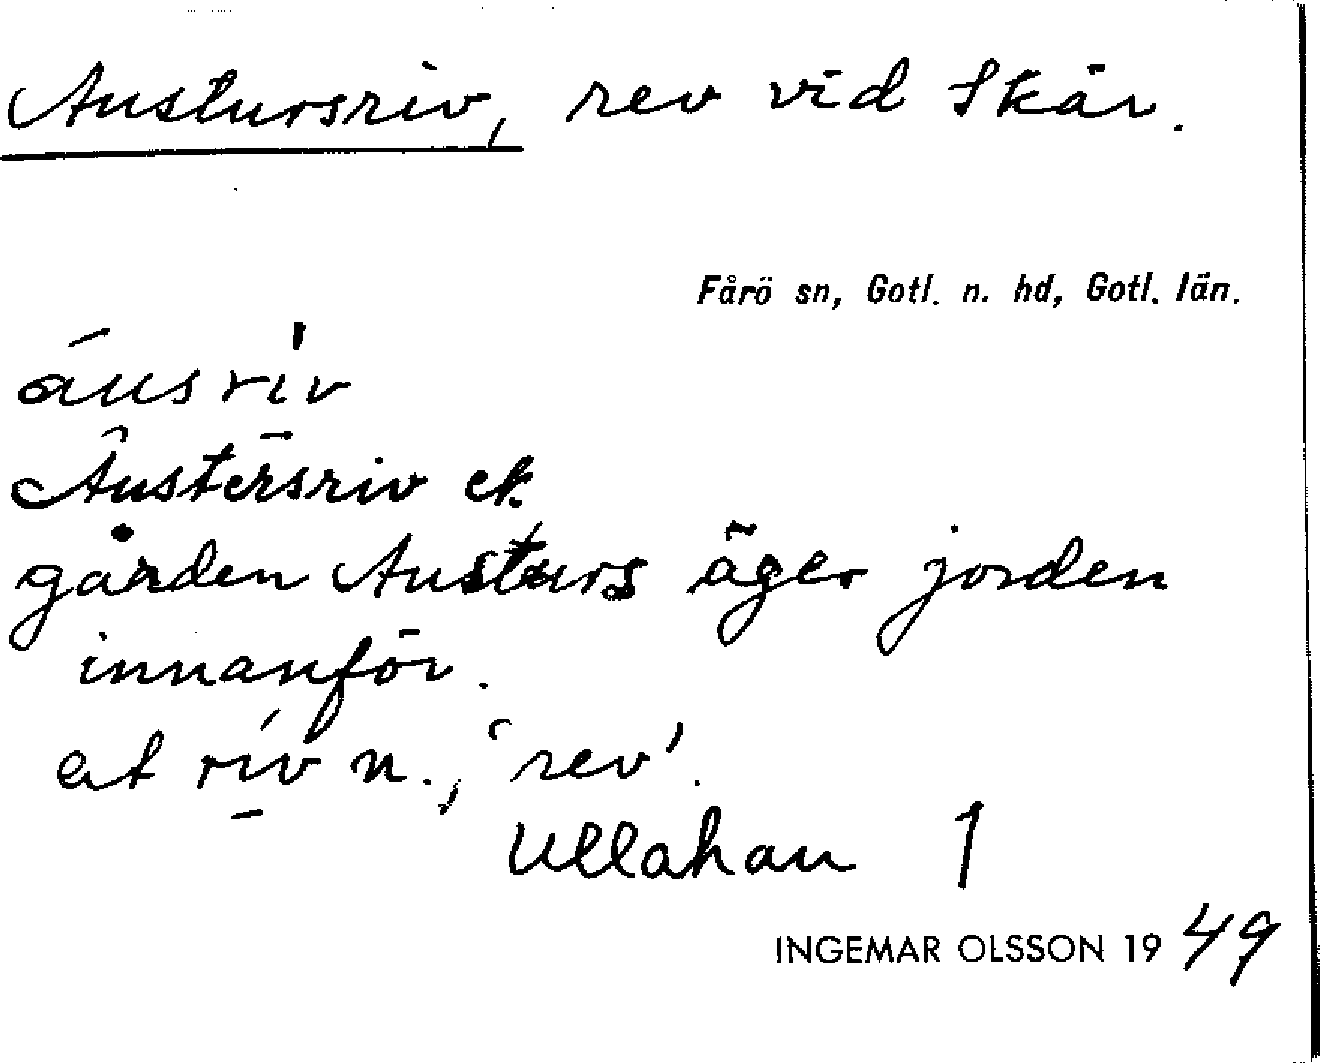 Austursriv, rev vid Skär.
Fårö sn, Gotl. n. hd, Gotl. län.
áusrìv
Austersriv ek
gården Austurs äger jorden
innanför.
et rív n., 'rev'.
Ullahau 1
INGEMAR OLSSON 1949